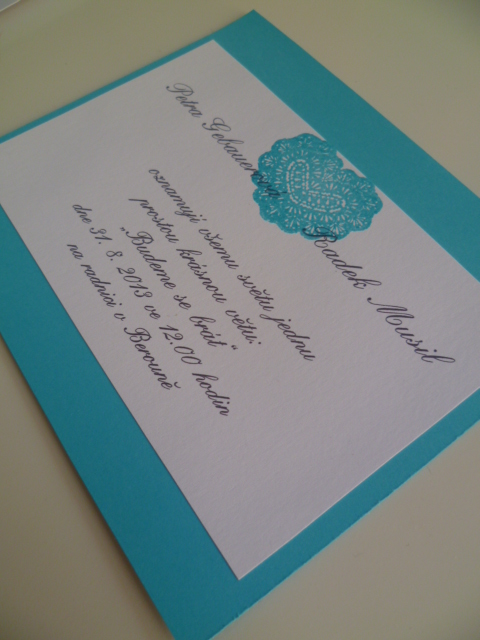 Petra Gebauerová
Radek Musil
oznamují všemu světu jednu
prostou krásnou větu:
„Budeme se brát“
dne 31. 8. 2013 ve 12.00 hodin
na radnici v Berouně